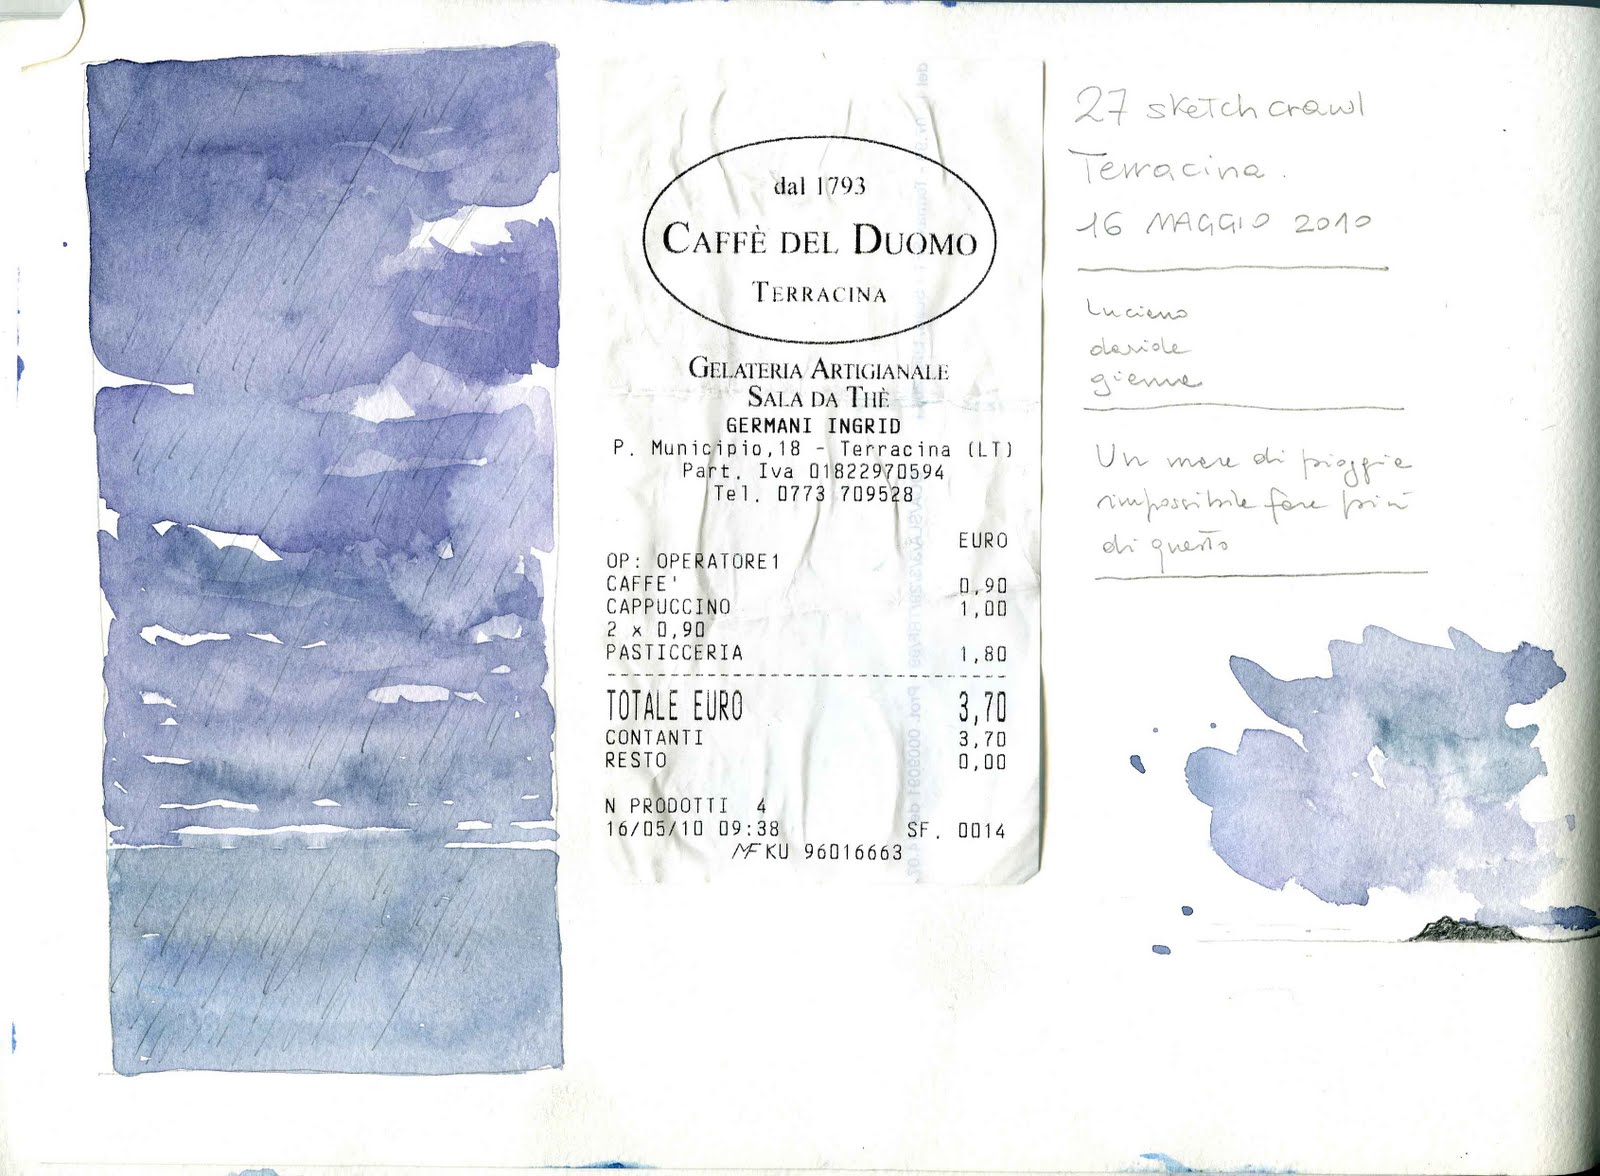 dal 1793
CAFFÈ DEL DUOMO
TERRACINA
GELATERIA ARTIGIANALE
SALA DA THÈ
GERMANI INGRID
P. Municipio,18 - Terracina (LT)
Part. Iva 01822970594
Tel. 0773 709528
EURO
OP: OPERATORE1
CAFFE' 0,90
CAPPUCCINO 1,00
2 x 0,90
PASTICCERIA 1,80
TOTALE EURO 3,70
CONTANTI 3,70
RESTO 0,00
N PRODOTTI 4
16/05/10 09:38 SF. 0014
MF KU 96016663
27 sketchcrawl
Terracina.
16 MAGGIO 2010
Luciano
davide
Un mare di pioggia
impossibile fare più
di questo